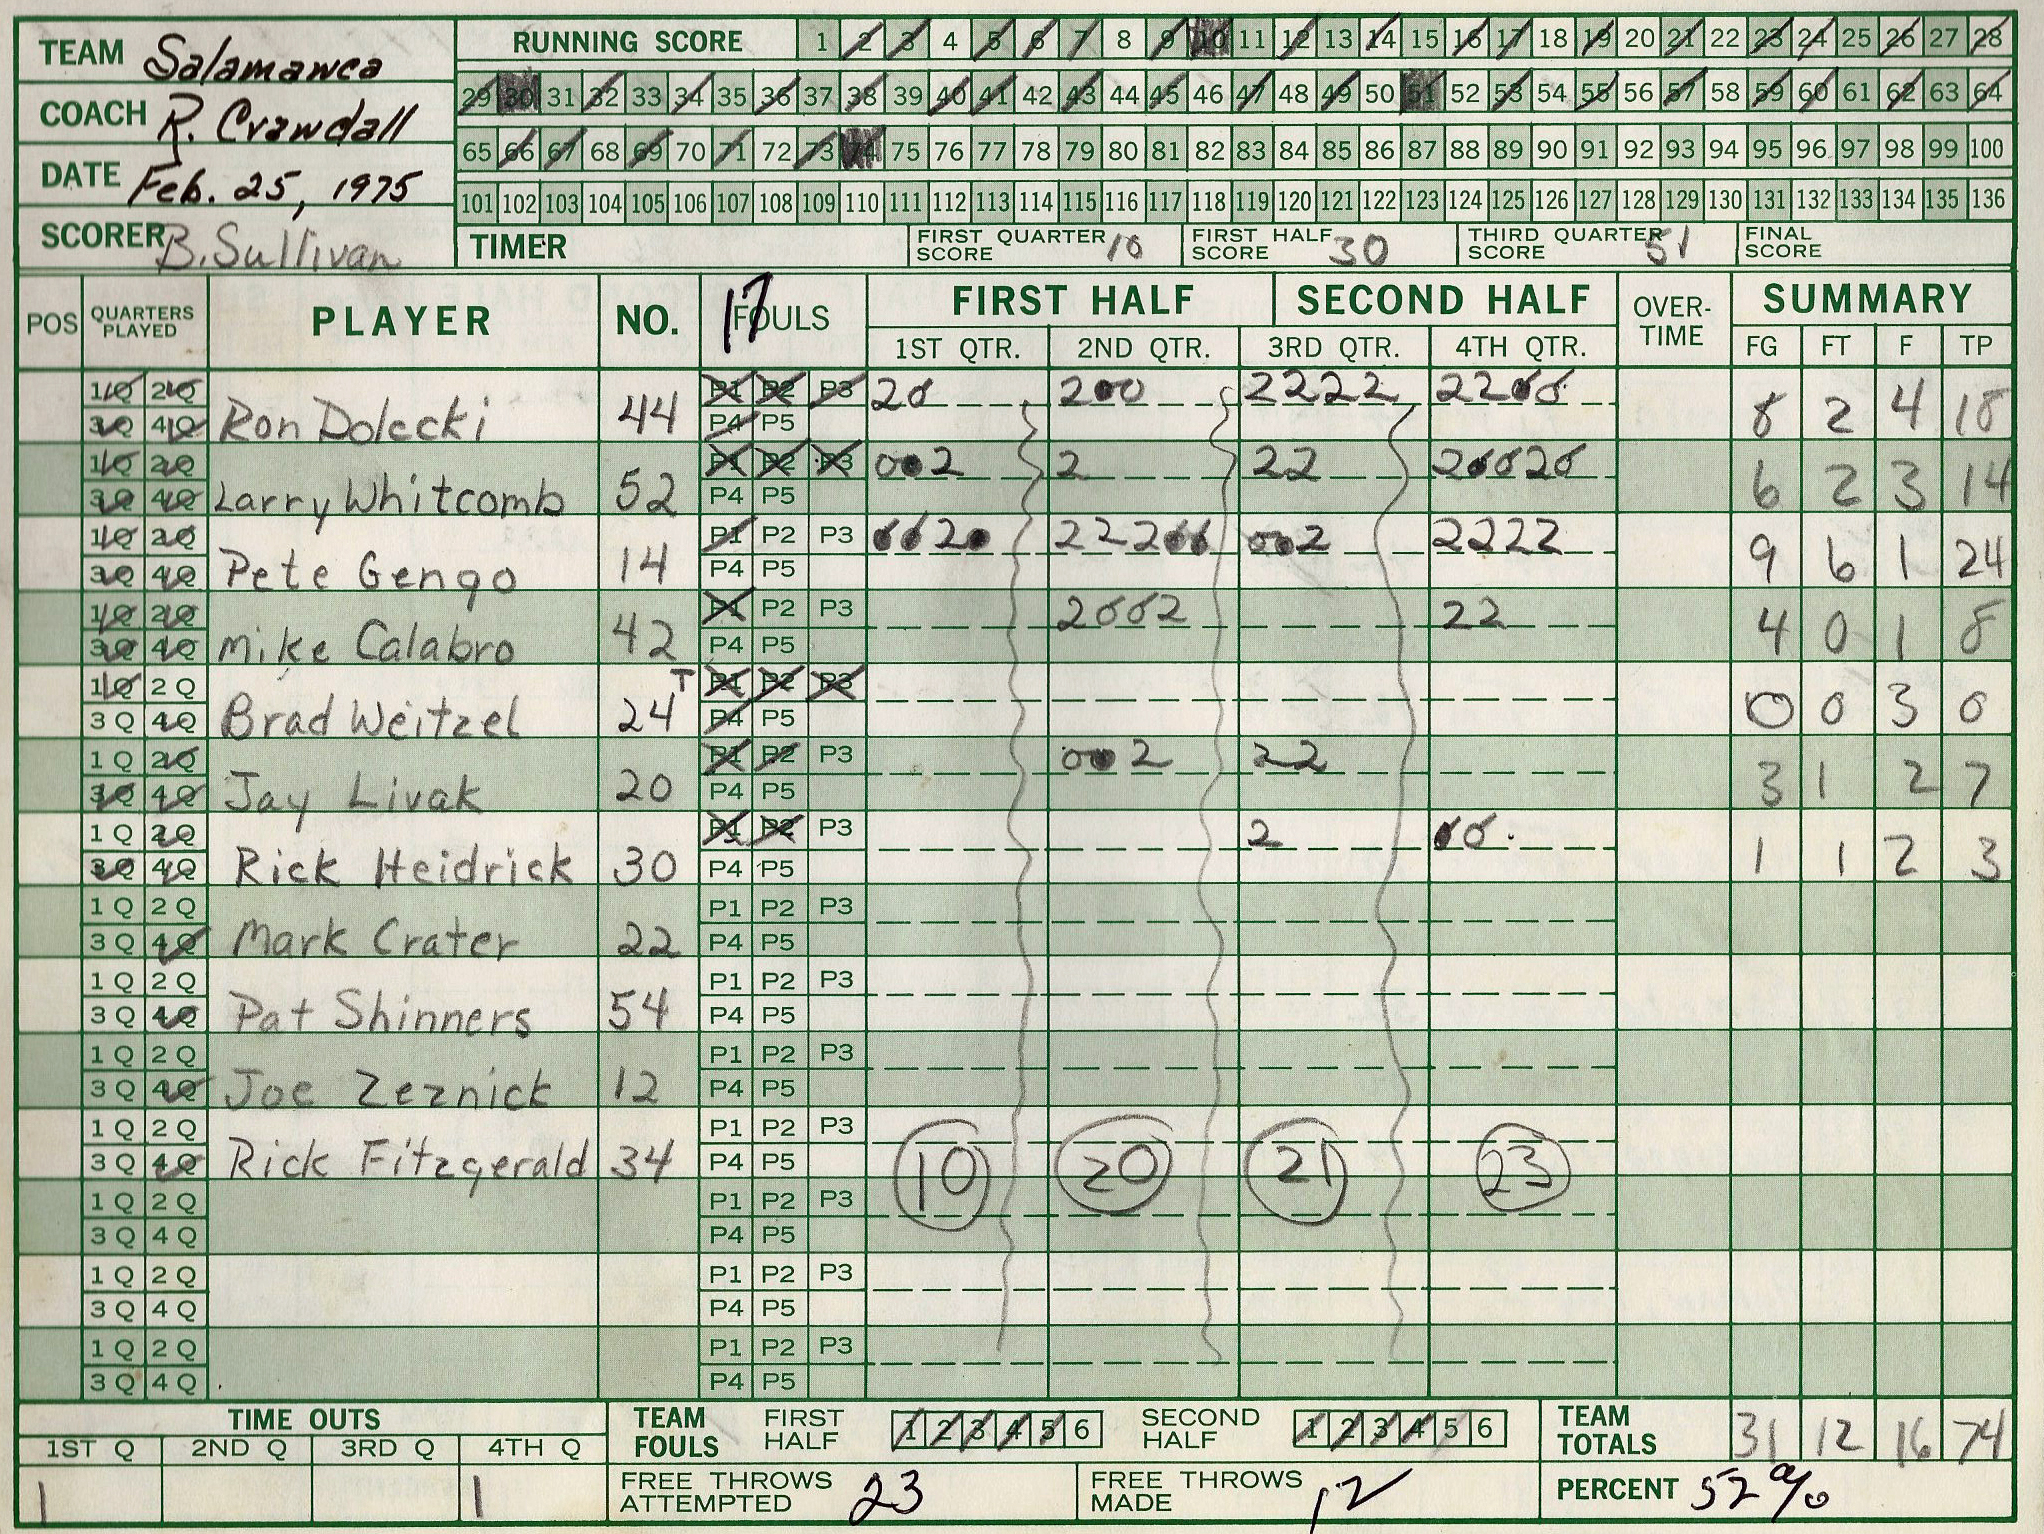 TEAM Salamanca
COACH R. Crandall
DATE Feb. 25, 1975
SCORER B. Sullivan
RUNNING SCORE 1 2 3 4 5 6 7 8 9 10 11 12 13 14 15 16 17 18 19 20 21 22 23 24 25 26 27 28
29 30 31 32 33 34 35 36 37 38 39 40 41 42 43 44 45 46 47 48 49 50 51 52 53 54 55 56 57 58 59 60 61 62 63 64
65 66 67 68 69 70 71 72 73 74 75 76 77 78 79 80 81 82 83 84 85 86 87 88 89 90 91 92 93 94 95 96 97 98 99 100
101 102 103 104 105 106 107 108 109 110 111 112 113 114 115 116 117 118 119 120 121 122 123 124 125 126 127 128 129 130 131 132 133 134 135 136
TIMER FIRST QUARTER SCORE 10 FIRST HALF SCORE 30 THIRD QUARTER SCORE 51 FINAL SCORE
POS QUARTERS PLAYED PLAYER NO. 17 FOULS FIRST HALF SECOND HALF OVER-TIME SUMMARY
1ST QTR. 2ND QTR. 3RD QTR. 4TH QTR. FG FT F TP
1Q 2Q 3Q 4Q Ron Dolecki 44 P1 P2 P3 P4 P5 20 200 2222 2200 8 2 4 18
1Q 2Q 3Q 4Q Larry Whitcomb 52 P1 P2 P3 P4 P5 002 2 22 20020 6 2 3 14
1Q 2Q 3Q 4Q Pete Gengo 14 P1 P2 P3 P4 P5 0020 22200 002 2222 9 6 1 24
1Q 2Q 3Q 4Q Mike Calabro 42 P1 P2 P3 P4 P5 2002 22 4 0 1 8
1Q 2Q 3Q 4Q Brad Weitzel 24 T P1 P2 P3 P4 P5 0 0 3 0
1Q 2Q 3Q 4Q Jay Livak 20 P1 P2 P3 P4 P5 002 22 3 1 2 7
1Q 2Q 3Q 4Q Rick Heidrick 30 P1 P2 P3 P4 P5 2 00 1 1 2 3
1Q 2Q 3Q 4Q Mark Crater 22 P1 P2 P3 P4 P5
1Q 2Q 3Q 4Q Pat Shinners 54 P1 P2 P3 P4 P5
1Q 2Q 3Q 4Q Joe Zeznick 12 P1 P2 P3 P4 P5
1Q 2Q 3Q 4Q Rick Fitzgerald 34 P1 P2 P3 P4 P5 10 20 21 23
1Q 2Q 3Q 4Q P1 P2 P3 P4 P5
1Q 2Q 3Q 4Q P1 P2 P3 P4 P5
1Q 2Q 3Q 4Q P1 P2 P3 P4 P5
TIME OUTS TEAM FOULS FIRST HALF 1 2 3 4 5 6 SECOND HALF 1 2 3 4 5 6 TEAM TOTALS 31 12 16 74
1ST Q 2ND Q 3RD Q 4TH Q
1 1 FREE THROWS ATTEMPTED 23 FREE THROWS MADE 12 PERCENT 52%